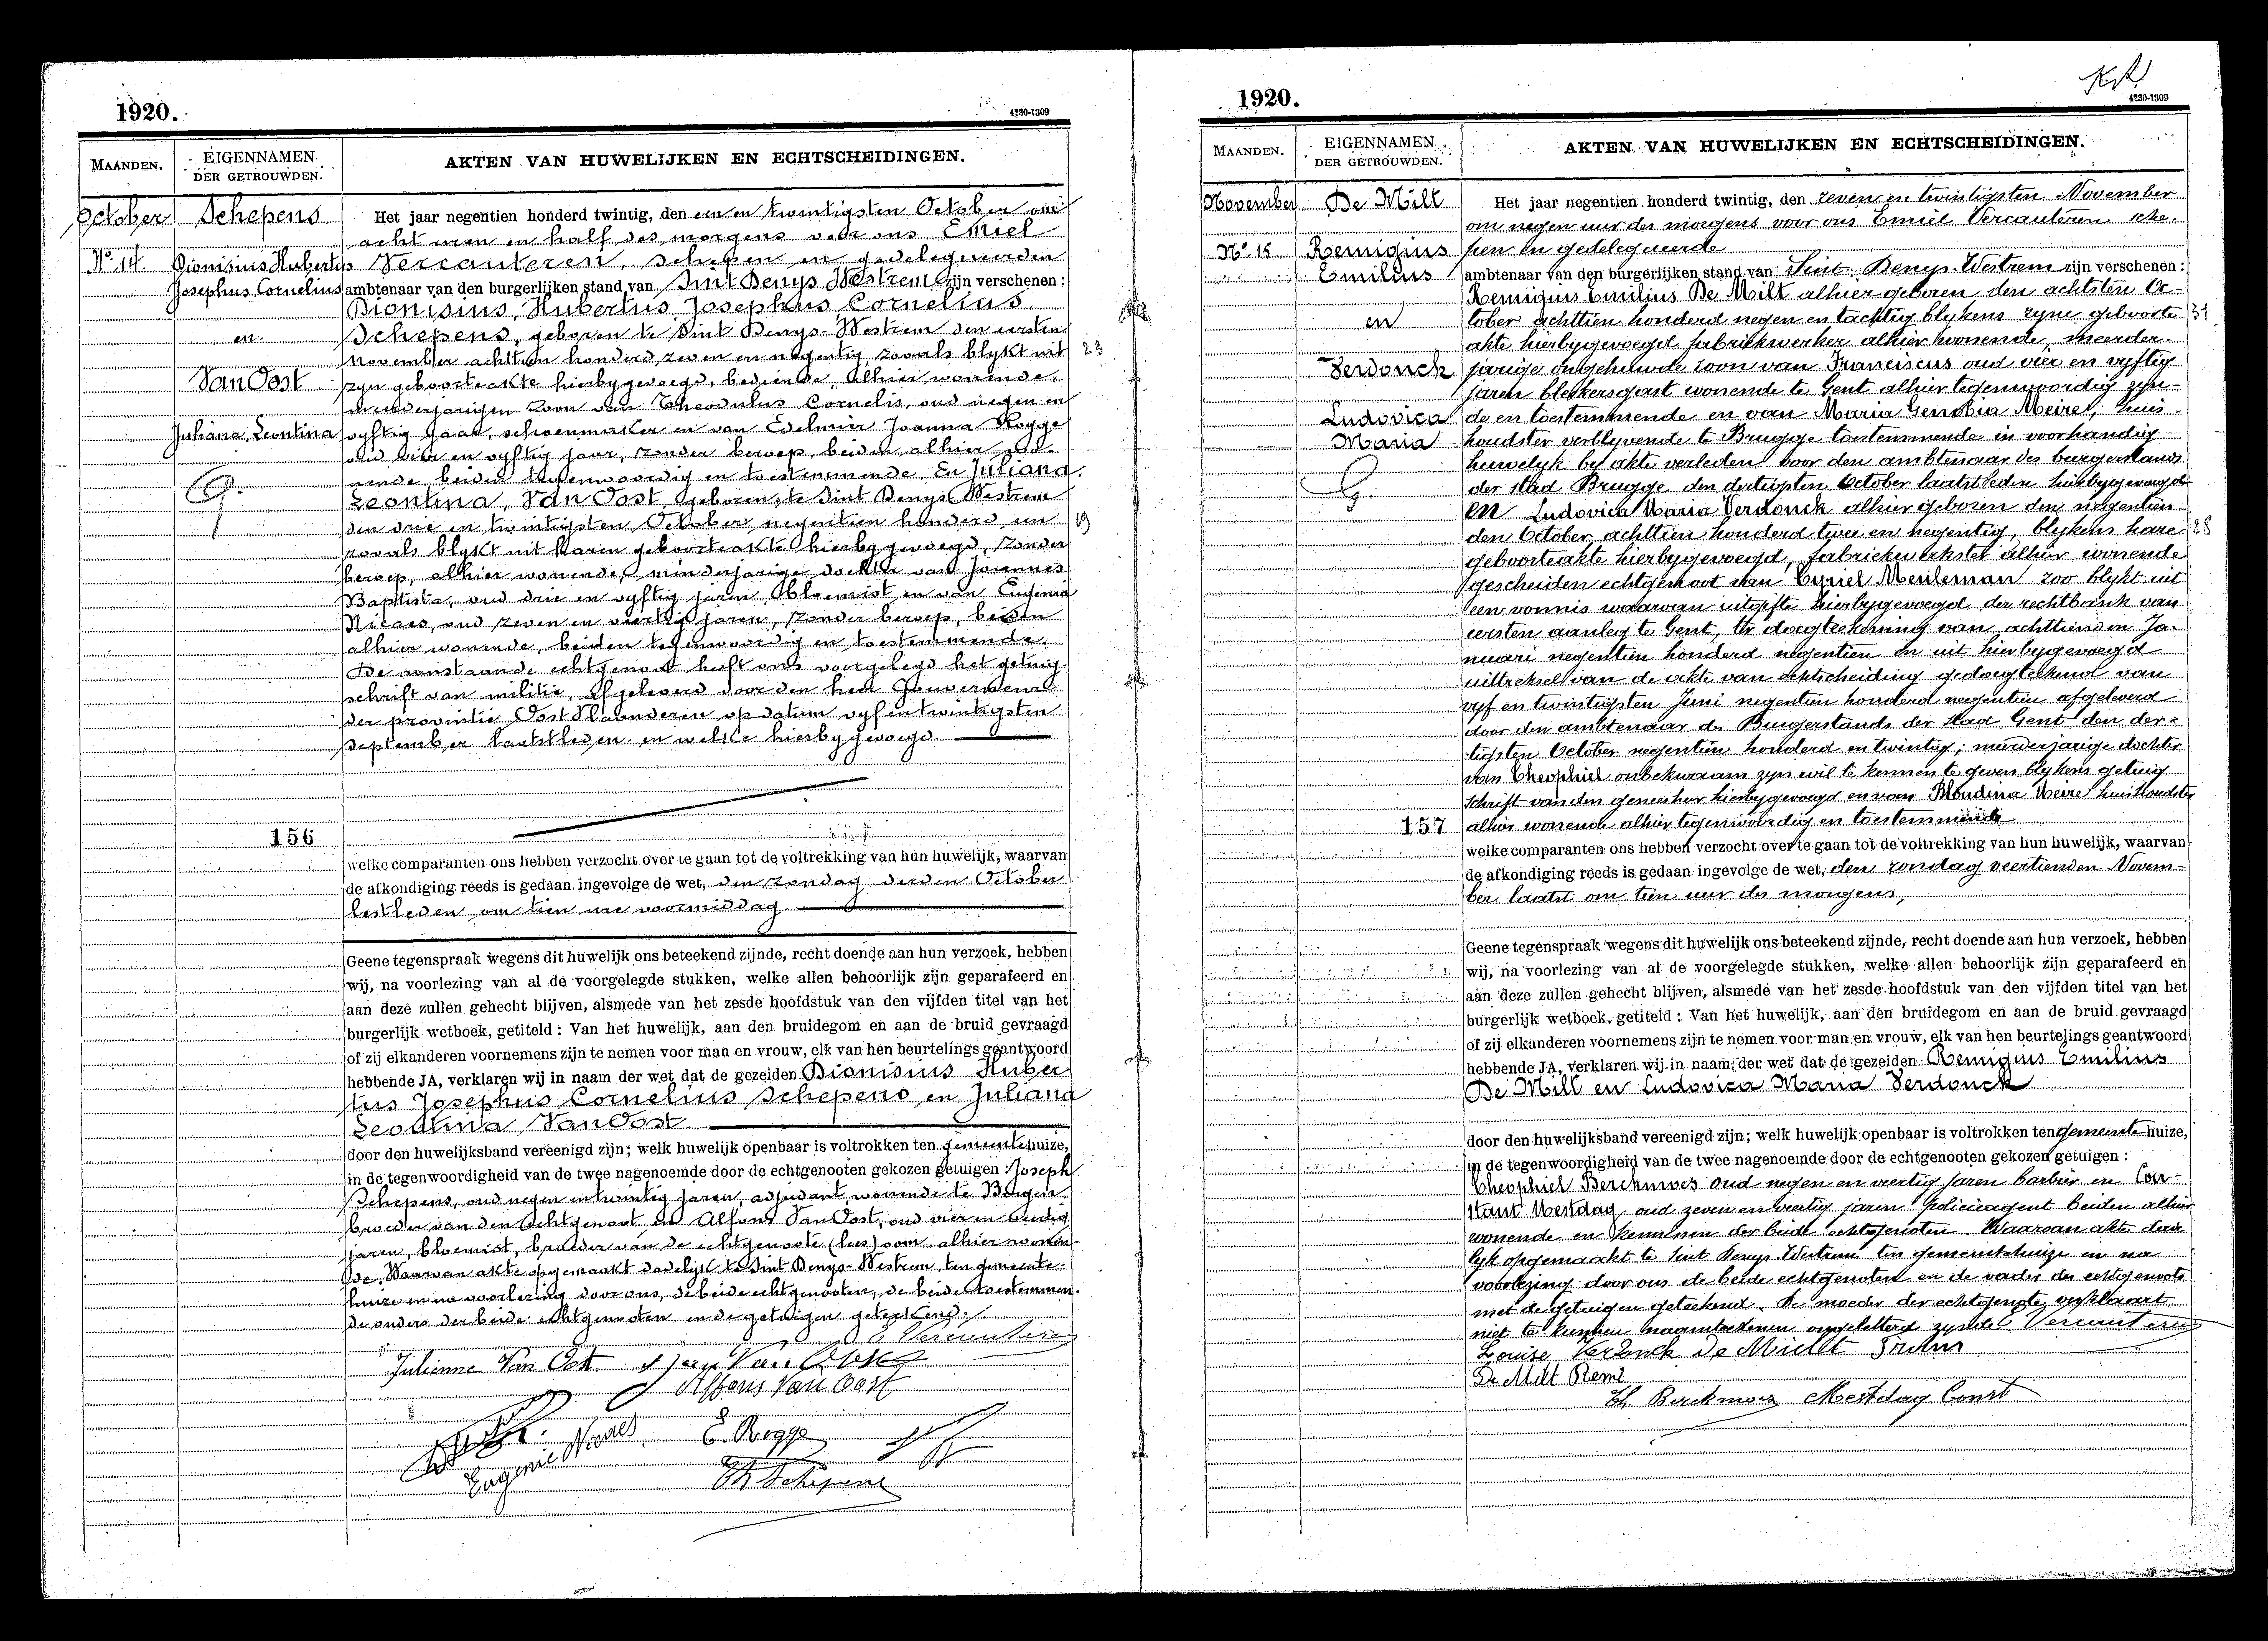 1920.
4230-1309
MAANDEN.
EIGENNAMEN DER GETROUWDEN.
AKTEN VAN HUWELIJKEN EN ECHTSCHEIDINGEN.
October
No 14.
Schepens
Dionisius Hubertus
Josephus Cornelius
en
Van Oost
Juliana, Leontina
G.
156
Het jaar negentien honderd twintig, den een en twintigsten October om
acht uren en half des morgens voor ons Emiel
Vercauteren, schepen en gedelegeerden
ambtenaar van den burgerlijken stand van Sint Denys Westrem zijn verschenen :
Dionisius, Hubertus, Josephus, Cornelius
Schepens, geboren te Sint Denys-Westrem den eersten
november achttien honderd zeven en negentig zooals blykt uit 23
zyn geboorteakte hierbygevoegd, bediende, alhier wonende,
meerderjarigen zoon van Theodulus Cornelis, oud negen en
vyftig jaar, schoenmaker en van Edelmier Joanna Rogge
oud vier en vyftig jaar, zonder beroep, beiden alhier wo-
nende, beiden tegenwoordig en toestemmende. En Juliana,
Leontina, Van Oost, geboren te Sint Denys Westrem
den drie en twintigsten October negentien honderd een 19
zooals blykt uit haren geboorteakte hierbygevoegd, zonder
beroep, alhier wonende, minderjarige dochter van Joannes
Baptista, oud drie en vyftig jaren, bloemist en van Eugenia
Nicaes, oud zeven en veertig jaren, zonder beroep, beiden
alhier wonende, beiden tegenwoordig en toestemmende.
De aanstaande echtgenoot heeft ons voorgelegd het getuig
schrift van militie, afgeleverd door den heer Gouverneur
der provintie Oost Vlaanderen op datum vyfentwintigsten
september laatstleden en welke hierbygevoegd
welke comparanten ons hebben verzocht over te gaan tot de voltrekking van hun huwelijk, waarvan
de afkondiging reeds is gedaan ingevolge de wet, den zondag derden October
lestleden om tien ure voormiddag
Geene tegenspraak wegens dit huwelijk ons beteekend zijnde, recht doende aan hun verzoek, hebben
wij, na voorlezing van al de voorgelegde stukken, welke allen behoorlijk zijn geparafeerd en
aan deze zullen gehecht blijven, alsmede van het zesde hoofdstuk van den vijfden titel van het
burgerlijk wetboek, getiteld : Van het huwelijk, aan den bruidegom en aan de bruid gevraagd
of zij elkanderen voornemens zijn te nemen voor man en vrouw, elk van hen beurtelings geantwoord
hebbende JA, verklaren wij in naam der wet dat de gezeiden Dionisius Huber
tus Josephus Cornelius Schepens en Juliana
Leontina Van Oost
door den huwelijksband vereenigd zijn; welk huwelijk openbaar is voltrokken ten gemeentehuize,
in de tegenwoordigheid van de twee nagenoemde door de echtgenooten gekozen getuigen : Joseph
Schepens, oud negen en twintig jaren, adjudant, wonende te Bergen
broeder van den echtgenoot en Alfons Van Oost, oud vier en twintig
jaren, bloemist, broeder van de echtgenoote alhier wonen
de. Waarvan akte opgemaakt dadelyk te Sint Denys-Westrem, ten gemeente
huize en na voorlezing door ons, de beide echtgenooten, de beide toestemmen
de ouders der beide echtgenooten en de getuigen geteekend.
E Vercauteren
Julienne Van Oost
Alfons Van Oost
Eugenie Nicaes
E. Rogge
Th Schepens
1920.
4230-1309
MAANDEN.
EIGENNAMEN DER GETROUWDEN.
AKTEN VAN HUWELIJKEN EN ECHTSCHEIDINGEN.
November
No 15
De Milt
Remigius
Emilius
en
Verdonck
Ludovica
Maria
G.
157
Het jaar negentien honderd twintig, den zeven en twintigsten November
om negen uur des morgens voor ons Emiel Vercauteren sche-
pen en gedelegeerde
ambtenaar van den burgerlijken stand van Sint Denys Westrem zijn verschenen :
Remigius Emilius De Milt alhier geboren den achtsten Oc-
tober achttien honderd negen en tachtig blykens zyne geboorte 31
akte hierbygevoegd fabriekwerker alhier wonende, meerder-
jarige ongehuwde zoon van Franciscus oud vier en vyftig
jaren blekersgast wonende te Gent alhier tegenwoordig zyn-
de en toestemmende en van Maria Genobia Meire, huis-
houdster verblyvende te Brugge toestemmende in voorhandig
huwelyk by akte verleden voor den ambtenaar des burgerstands
der stad Brugge den dertigsten October laatstleden hierbygevoegd
en Ludovica Maria Verdonck alhier geboren den negentien-
den October achttien honderd twee en negentig, blykens hare 28
geboorteakte hierbygevoegd, fabriekwerkster alhier wonende
gescheiden echtgenoot van Cyriel Meuleman zoo blykt uit
een vonnis waarvan uitgifte hierbygevoegd der rechtbank van
eersten aanleg te Gent, ter dagteekening van achttienden Ja-
nuari negentien honderd negentien en uit hierbygevoegd
uittreksel van de akte van echtscheiding gedagteekend van
vyf en twintigsten Juni negentien honderd negentien afgeleverd
door den ambtenaar des Burgerstands der stad Gent den der-
tigsten October negentien honderd en twintig; meerderjarige dochter
van Theophiel onbekwaam zyn wil te kennen te geven blykens getuig
schrift van den geneesheer hierbygevoegd en van Blondina Meire huishoudster
alhier wonende alhier tegenwoordig en toestemmende
welke comparanten ons hebben verzocht over te gaan tot de voltrekking van hun huwelijk, waarvan
de afkondiging reeds is gedaan ingevolge de wet, den zondag veertienden Novem-
ber laatst om tien uur des morgens,
Geene tegenspraak wegens dit huwelijk ons beteekend zijnde, recht doende aan hun verzoek, hebben
wij, na voorlezing van al de voorgelegde stukken, welke allen behoorlijk zijn geparafeerd en
aan deze zullen gehecht blijven, alsmede van het zesde hoofdstuk van den vijfden titel van het
burgerlijk wetboek, getiteld : Van het huwelijk, aan den bruidegom en aan de bruid gevraagd
of zij elkanderen voornemens zijn te nemen voor man en vrouw, elk van hen beurtelings geantwoord
hebbende JA, verklaren wij in naam der wet dat de gezeiden Remigius Emilius
De Milt en Ludovica Maria Verdonck
door den huwelijksband vereenigd zijn; welk huwelijk openbaar is voltrokken ten gemeentehuize,
in de tegenwoordigheid van de twee nagenoemde door de echtgenooten gekozen getuigen :
Theophiel Berckmoes oud negen en veertig jaren barbier en Con-
stant Mestdag oud zeven en veertig jaren policieagent beiden alhier
wonende en kennissen der beide echtgenoten. Waarvan akte dade
lyk opgemaakt te Sint Denys Westrem ten gemeentehuize en na
voorlezing door ons de beide echtgenoten en de vader des echtgenoots
met de getuigen geteekend. De moeder der echtgenote verklaart
niet te kunnen naamteekenen ongeletterd zynde. Vercauteren
Louise Verdonck De Mildt
De Milt Remi
Th Berckmoes Mestdag Const